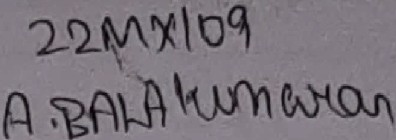 22MX109
A.BALAkumaran